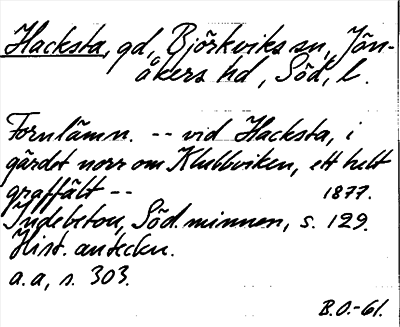 Hacksta, gd, Björkviks sn, Jön-
åkers hd, Söd. l.
Fornlämn. -- vid Hacksta, i
gärdet norr om Klubbviken, ett helt
graffält -- 1877.
Indebetou, Söd. minnen, s. 129.
Hist. anteckn.
a.a, s. 303.
B.O.-61.